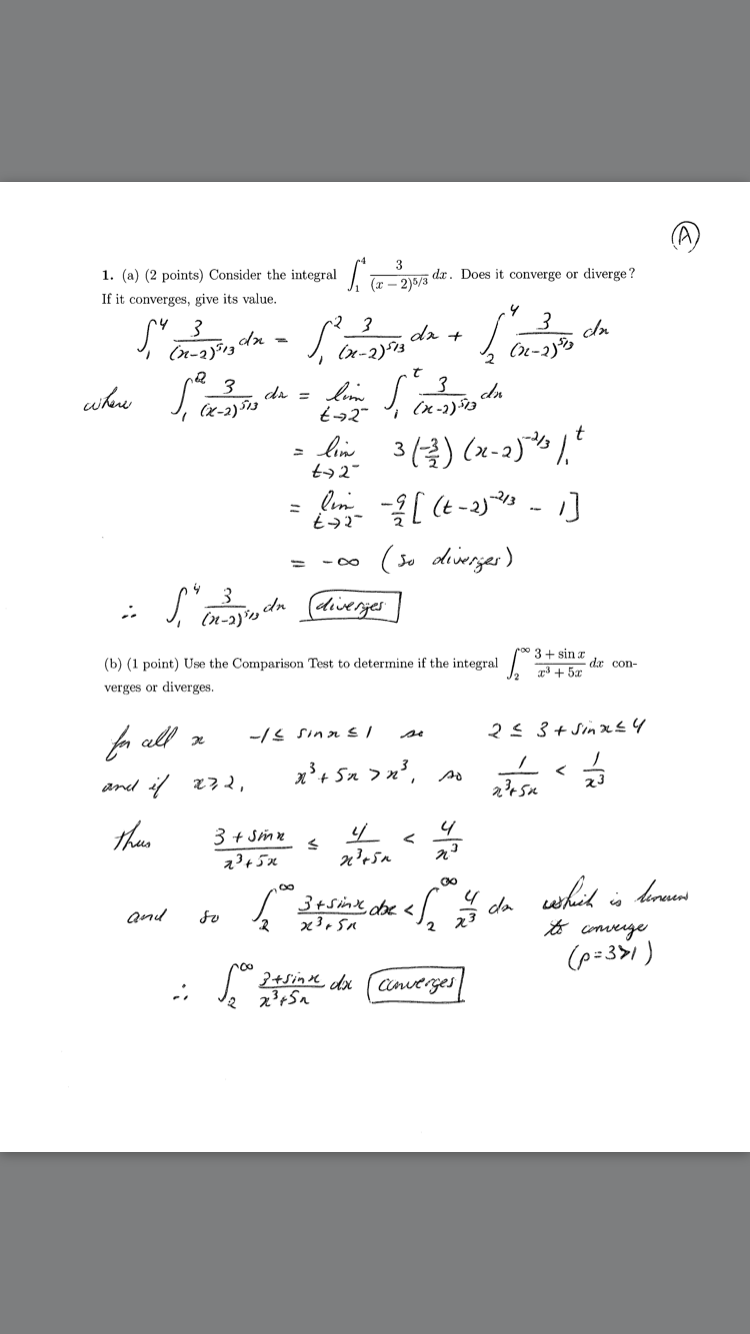 A
1. (a) (2 points) Consider the integral ∫₁⁴ 3/(x − 2)^{5/3} dx. Does it converge or diverge?
If it converges, give its value.
∫₁⁴ 3/(x-2)^{5/3} dx = ∫₁² 3/(x-2)^{5/3} dx + ∫₂⁴ 3/(x-2)^{5/3} dx
where ∫₁² 3/(x-2)^{5/3} dx = lim t→2⁻ ∫₁ᵗ 3/(x-2)^{5/3} dx
= lim t→2⁻ 3(-3/2) (x-2)^{-2/3} |₁ᵗ
= lim t→2⁻ -9/2 [(t-2)^{-2/3} - 1]
= -∞ (so diverges)
∴ ∫₁⁴ 3/(x-2)^{5/3} dx diverges
(b) (1 point) Use the Comparison Test to determine if the integral ∫₂^∞ (3 + sin x)/(x³ + 5x) dx con-
verges or diverges.
for all x -1 ≤ sin x ≤ 1 so 2 ≤ 3 + sin x ≤ 4
and if x ≥ 2, x³ + 5x > x³, so 1/(x³+5x) < 1/x³
thus (3 + sin x)/(x³+5x) ≤ 4/(x³+5x) < 4/x³
and so ∫₂^∞ (3+sin x)/(x³+5x) dx < ∫₂^∞ 4/x³ dx which is known
to converge
(p=3>1)
∴ ∫₂^∞ (3+sin x)/(x³+5x) dx converges